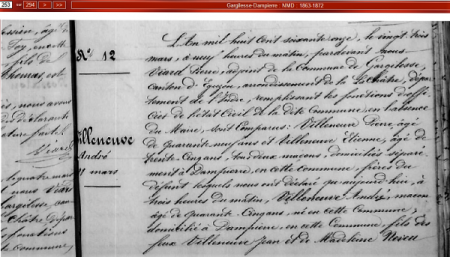 253 << 254 > >> Gargilesse-Dampierre NMD 1863-1872
N.° 12
Villeneuve
André
mars
L'An mil huit cent soixante onze, le vingt trois
mars, à neuf heures du matin, pardevant nous
Viard Pierre, adjoint de la Commune de Gargilesse,
Canton d'Eguzon, arrondissement de la Châtre, dépar-
tement de l'Indre, remplissant les fonctions d'offi-
cier de l'état Civil de la dite Commune, en l'absence
du Maire, sont Comparus: Villeneuve Pierre, âgé
de quarante neuf ans et Villeneuve Etienne, âgé de
trente-Cinq ans, tous deux maçons, domiciliés séparé-
ment à Dampierre, en cette Commune, frères du
défunt lesquels nous ont déclaré qu'aujourd'hui, à
trois heures du matin, Villeneuve André, maçon
âgé de quarante-Cinq ans, né en cette Commune,
domicilié à Dampierre, en cette Commune, fils des
feux Villeneuve Jean et de Madeleine